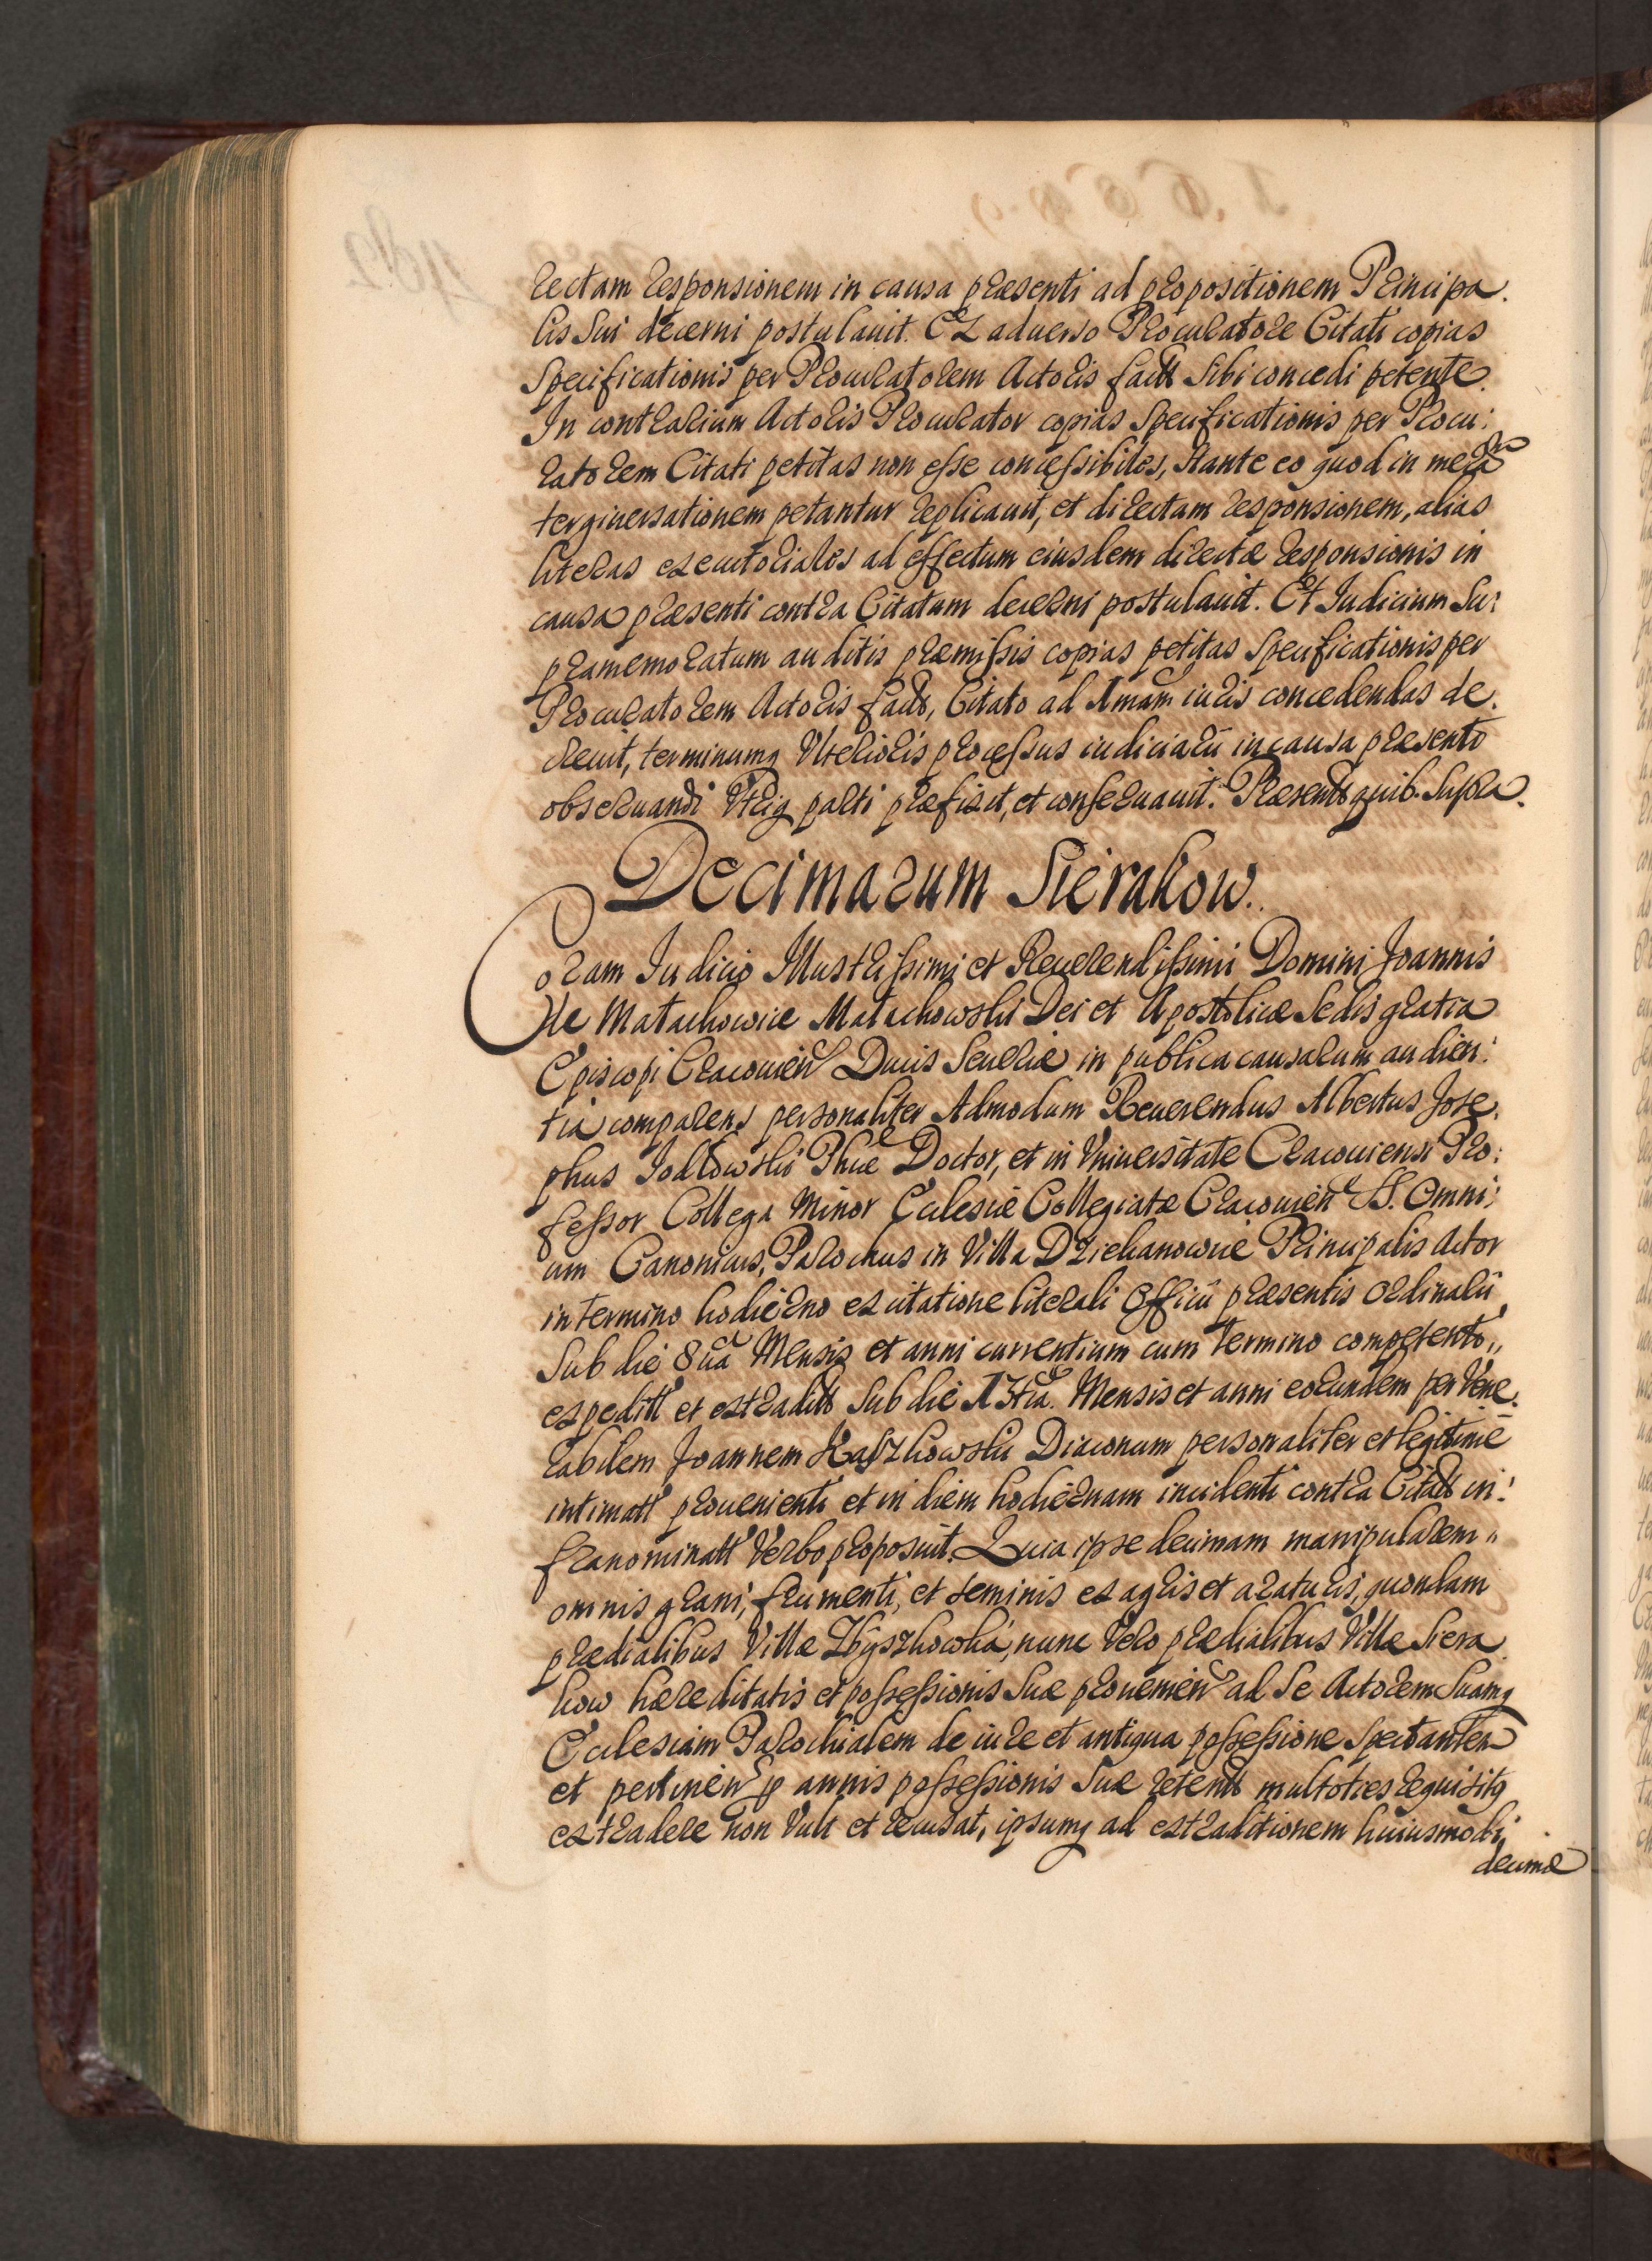 rectam responsionem in causa præsenti ad propositionem Principa.
lis sui decerni postulauit. Ex aduerso Procuratore Citati copias
specificationis per Procuratorem Actoris fact sibi concedi petente.
In contrarium Actoris Procurator copias specificationis per Procu:
ratorem Citati petitas non esse concessibiles, stante eo quod in mera
tergiuersationem petantur replicauit, et directam responsionem, alias
literas executoriales ad effectum eiusdem directæ responsionis in
causa præsenti contra Citatum decerni postulauit. Et Iudicium Su:
pramemoratum auditis præmissis copias petitas specificationis per
Procuratorem Actoris fact, Citato ad Imam iuris concedendas de.
creuit, terminumq Vlterioris processus iudiciarii in causa præsenti
obseruandi Vtriq parti præfixit, et conseruauit. Præsent quib. supra.
Decimarum Sierakow.
Coram Iudicio Illustrissimi et Reuerendissimi Domini Joannis
de Małachowice Małachowski Dei et Apostolicæ Sedis gratia
Episcopi Cracouien Ducis Seueriæ in publica causarum audien:
tia comparens personaliter Admodum Reuerendus Albertus Jose.
phus Jodłowski Phiæ Doctor, et in Vniuersitate Cracouiensi Pro:
fessor Collega Minor Ecclesiæ Collegiatæ Cracouien SS. Omni:
um Canonicus, Parochus in Villa Dziekanowice Principalis Actor
in termino hodierno ex citatione literali Officii præsentis Ordinarii
sub die 8ua Mensis et anni currentium cum termino competenti,,
expeditt et extradit sub die 13tia. Mensis et anni eorundem per Vene.
rabilem Joannem Kaszkowski Diaconum personaliter et legitime
intimatt prouenienti et in diem hodiernam incidenti contra Citatt in:
franominatt Verbo proposuit. Quia ipse decimam manipularem,,
omnis grani, frumenti, et seminis ex agris et araturis, quondam
prædialibus Villæ Zbyszkowka, nunc Vero prædialibus Villæ Siera
kow hæreditatis et possessionis suæ prouenien ad se Actorem suamq
Ecclesiam Parochialem de iure et antiqua possessione spectantem
et pertinen p annis possessionis suæ retent multoties requisitq
extradere non Vult et recusat, ipsumq ad extraditionem huiusmodi
decimæ